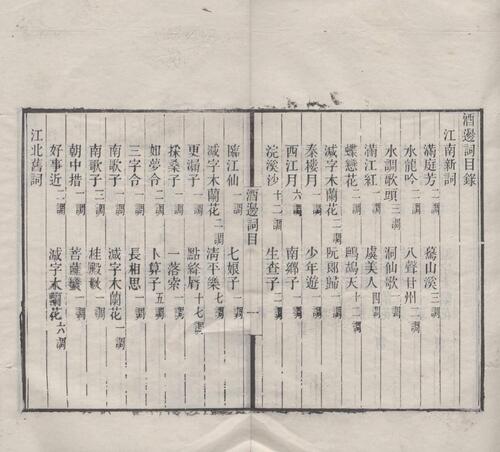 酒邊詞目錄
江南新詞
滿庭芳二調 驀山溪三調
水龍吟二調 八聲甘州二調
水調歌頭三調 洞仙歌一調
滿江紅一調 虞美人四調
蝶戀花二調 鷓鴣天十二調
減字木蘭花一調 阮郎歸一調
秦樓月二調 少年遊一調
西江月六調 南鄉子一調
浣溪沙十二調 生查子二調
酒邊詞目 一
臨江仙一調 七娘子一調
減字木蘭花二調 清平樂七調
更漏子一調 點絳脣十七調
採桑子一調 一落索一調
如夢令二調 卜算子五調
三字令一調 長相思一調
南歌子一調 減字木蘭花一調
南歌子三調 桂殿秋一調
朝中措一調 菩薩蠻一調
好事近二調 減字木蘭花六調
江北舊詞